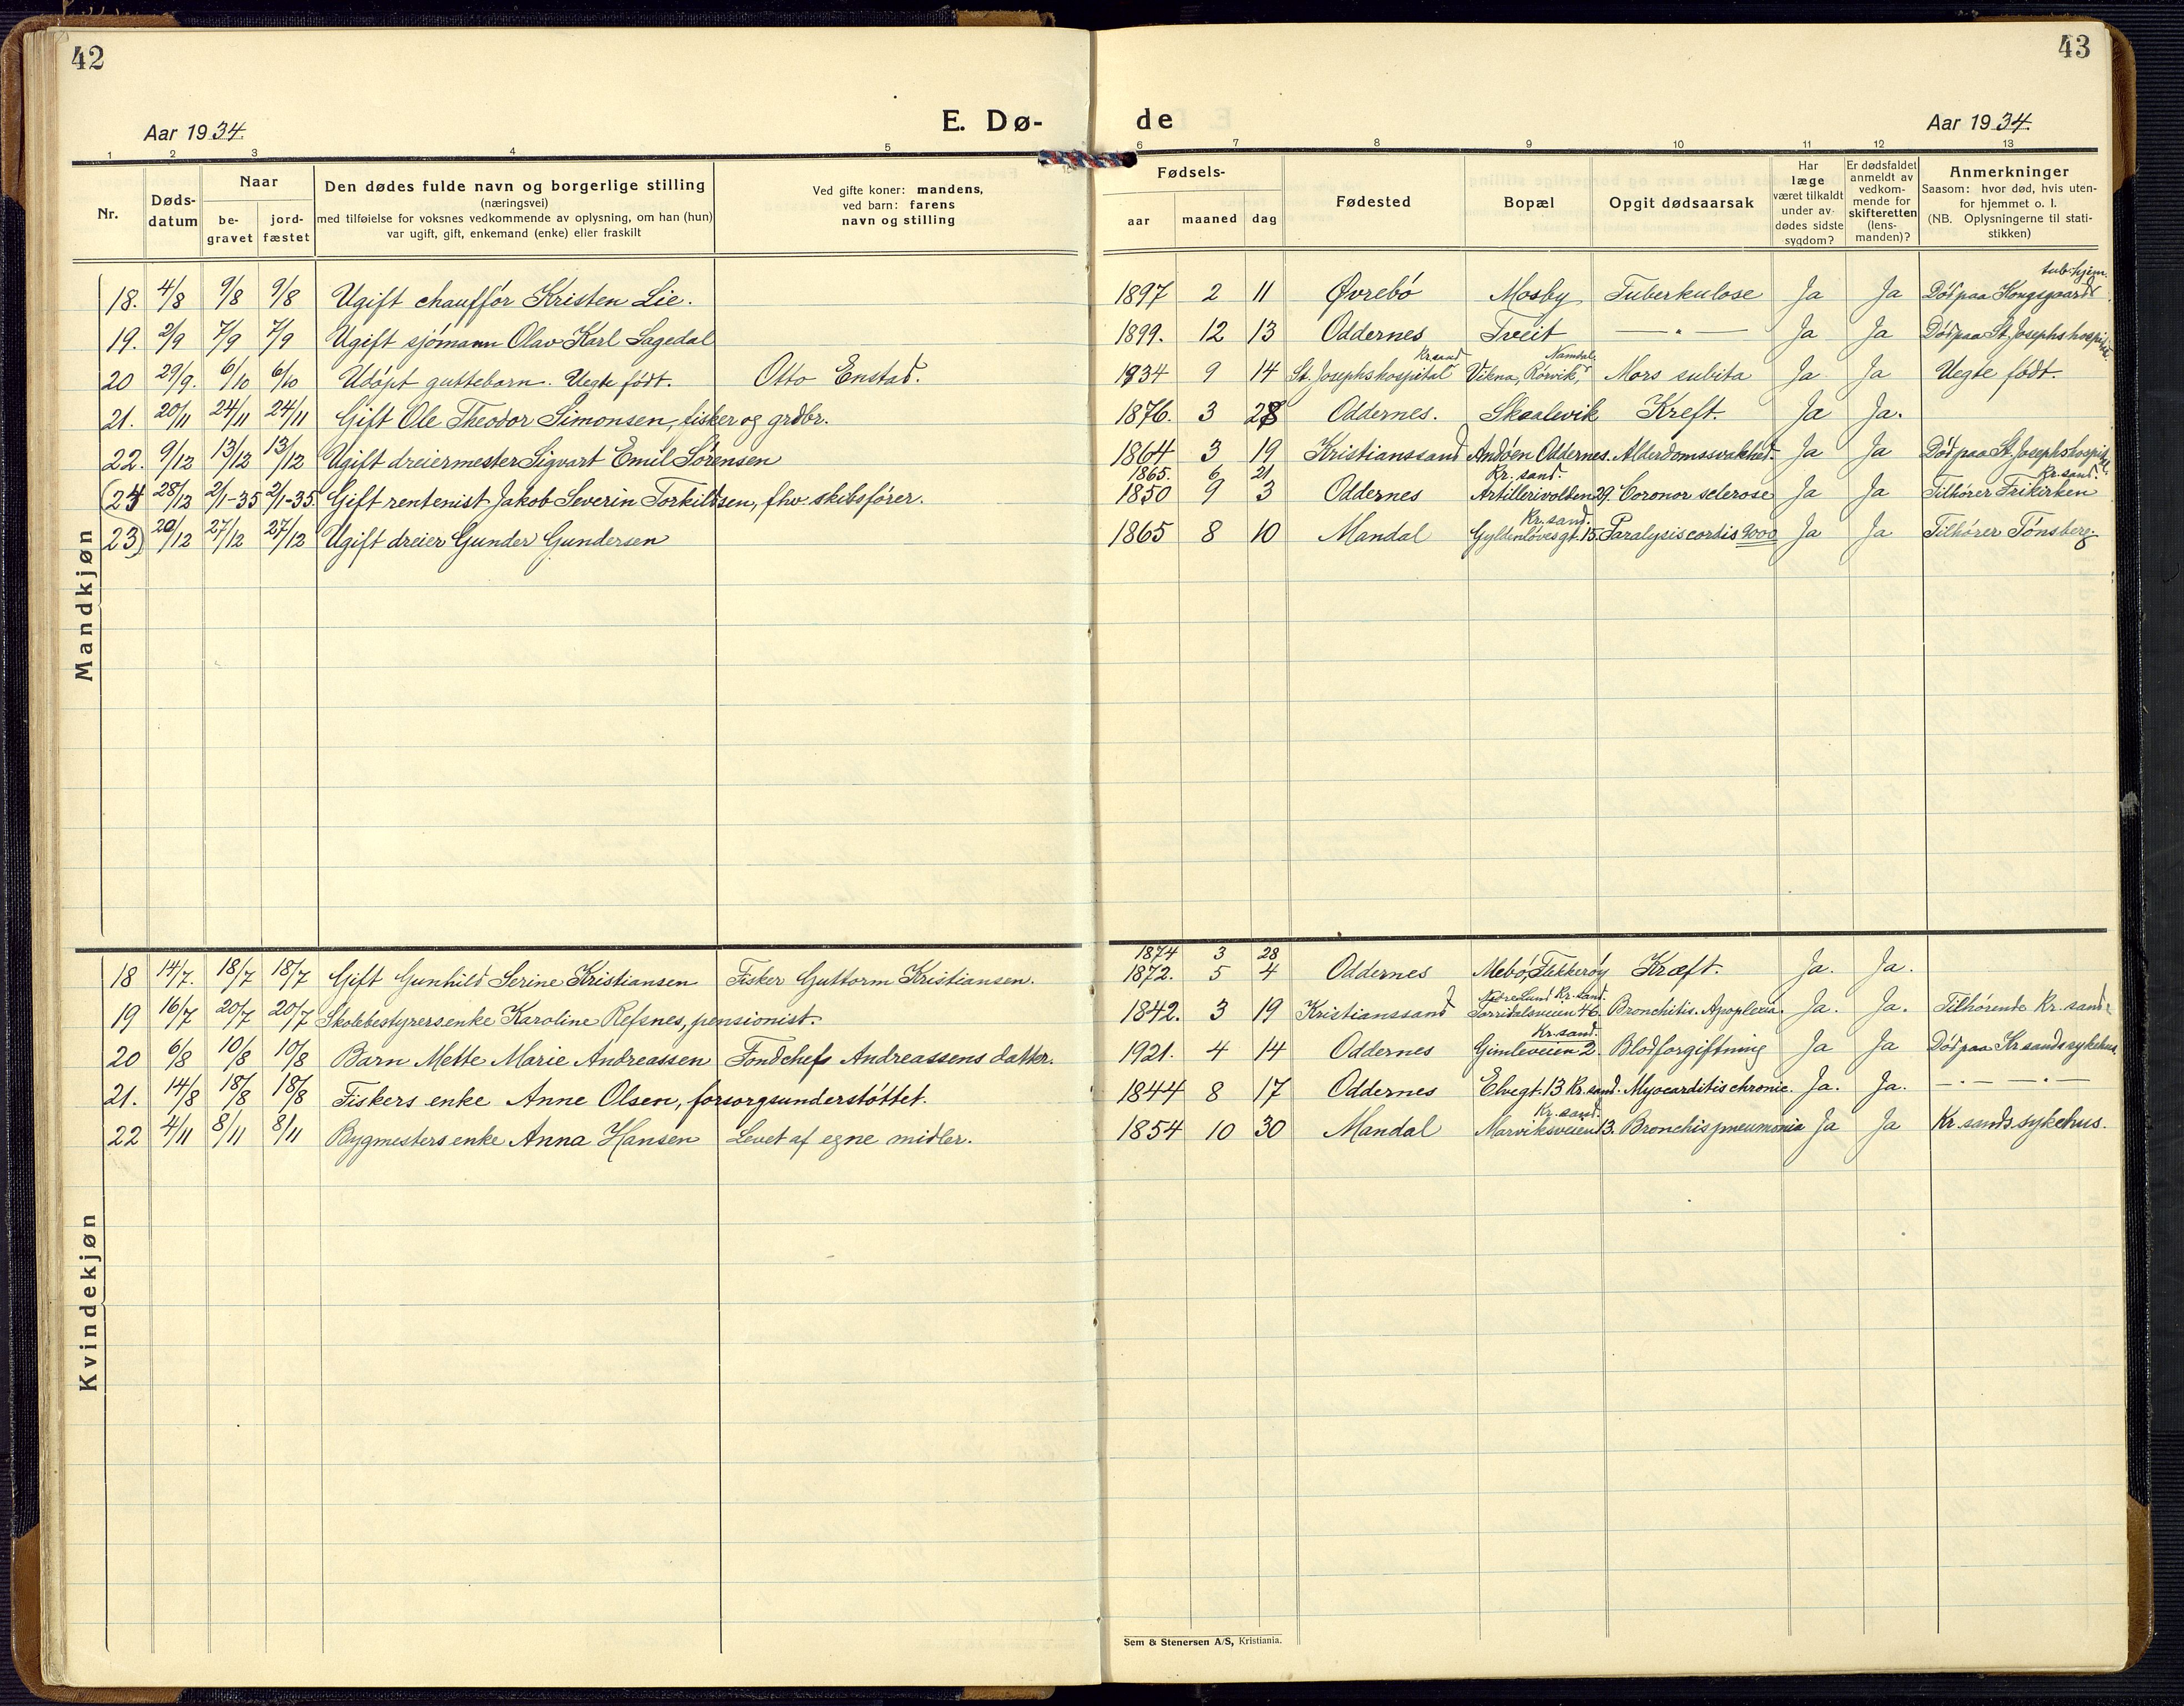 42
43
Aar 1934.
E. Dø-
de
Aar 1934.
1 2 3 4 5 6 7 8 9 10 11 12 13
Nr.
Døds-
datum
Naar
be-
gravet
jord-
fæstet
Den dødes fulde navn og borgerlige stilling
(næringsvei)
med tilføielse for voksnes vedkommende av oplysning, om han (hun)
var ugift, gift, enkemand (enke) eller fraskilt
Ved gifte koner: mandens,
ved barn: farens
navn og stilling
Fødsels-
aar
maaned
dag
Fødested
Bopæl
Opgit dødsaarsak
Har
læge
været tilkaldt
under av-
dødes sidste
sygdom?
Er dødsfaldet
anmeldt av
vedkom-
mende for
skifteretten
(lens-
manden)?
Anmerkninger
Saasom: hvor død, hvis uten-
for hjemmet o. l.
(NB. Oplysningerne til stati-
stikken)
Mandkjøn
tub.hjem.
18. 4/8 9/8 9/8 Ugift chauffør Kristen Lie. 1897 2 11 Øvrebö Mosby Tuberkulose Ja Ja Død paa Kongsgaard
19. 2/9 7/9 7/9 Ugift sjömann Olav Karl Lagedal 1899. 12 13 Oddernes Tveit — " — Ja Ja Död paa St. Josephs hospital.
Kr.sand Namdal
20 29/9. 6/10 6/10 Udöpt guttebarn. Uegte födt. Otto Enstad. 1934 9 14 St. Josephs hospital Vikna, Rörvik, Mors subita Ja Ja Uegte födt.
21. 20/11 24/11 24/11 Gift Ole Theodor Simonsen, fisker og grdbr. 1876. 3 28 Oddernes. Skaalevik Kreft. Ja Ja.
22. 9/12 13/12 13/12 Ugift dreiermester Sigvart Emil Sörensen 1864 3 19 Kristianssand Andöen Oddernes. Alderdomssvakhed. Ja Ja Död paa St. Josephs hospital
1865. 6 21 Kr. sand. Kr. sand.
(24 28/12 2/1-35 2/1-35. Gift rentenist Jakob Severin Torkildsen, fhv. skibsförer. 1850 9 3 Oddernes Artillerivolden 29. Coronor sclerose Ja Ja Tilhörer Frikirken
Kr. sand.
23) 20/12 27/12 27/12 Ugift dreier Gunder Gundersen 1865 8 10 Mandal Gyldenlövesgt. 15. Paralysis cordis 9000 Ja Ja Tilhörer Tönsberg
Kvindekjøn
1874 3 28
18 14/7. 18/7 18/7 Gift Gunhild Serine Kristiansen Fisker Guttorm Kristiansen. 1872. 5 4 Oddernes Mebö, Flekkeröy Kræft. Ja. Ja.
Kr. sand.
19 16/7 20/7 20/7 Skolebestyrersenke Karoline Refsnes, pensionist. 1842. 3 19 Kristianssand Torridalsveien 46. Bronchitis. Apoplexia. Ja. Ja. Tilhörende Kr. sand.
Kr. sand.
20 6/8 10/8 10/8 Barn Mette Marie Andreassen Fondchefs Andreassens datter. 1921. 4 14 Oddernes Gimleveien 2. Blodforgiftning Ja Ja Död paa Kr sands sykehus.
21. 14/8 18/8 18/8 Fiskers enke Anne Olsen, forsorgsunderstöttet. 1844 8 17 Oddernes Elvegt. 13 Kr. sand. Myocarditis chronic. Ja. Ja. — " — " —
Kr. sand.
22 4/11 8/11 8/11 Bygmesters enke Anna Hansen Levet af egne midler. 1854 10 30 Mandal Marviksveien 13. Bronchispneumonia Ja Ja Kr. sands sykehus.
Sem & Stenersen A/S, Kristiania.